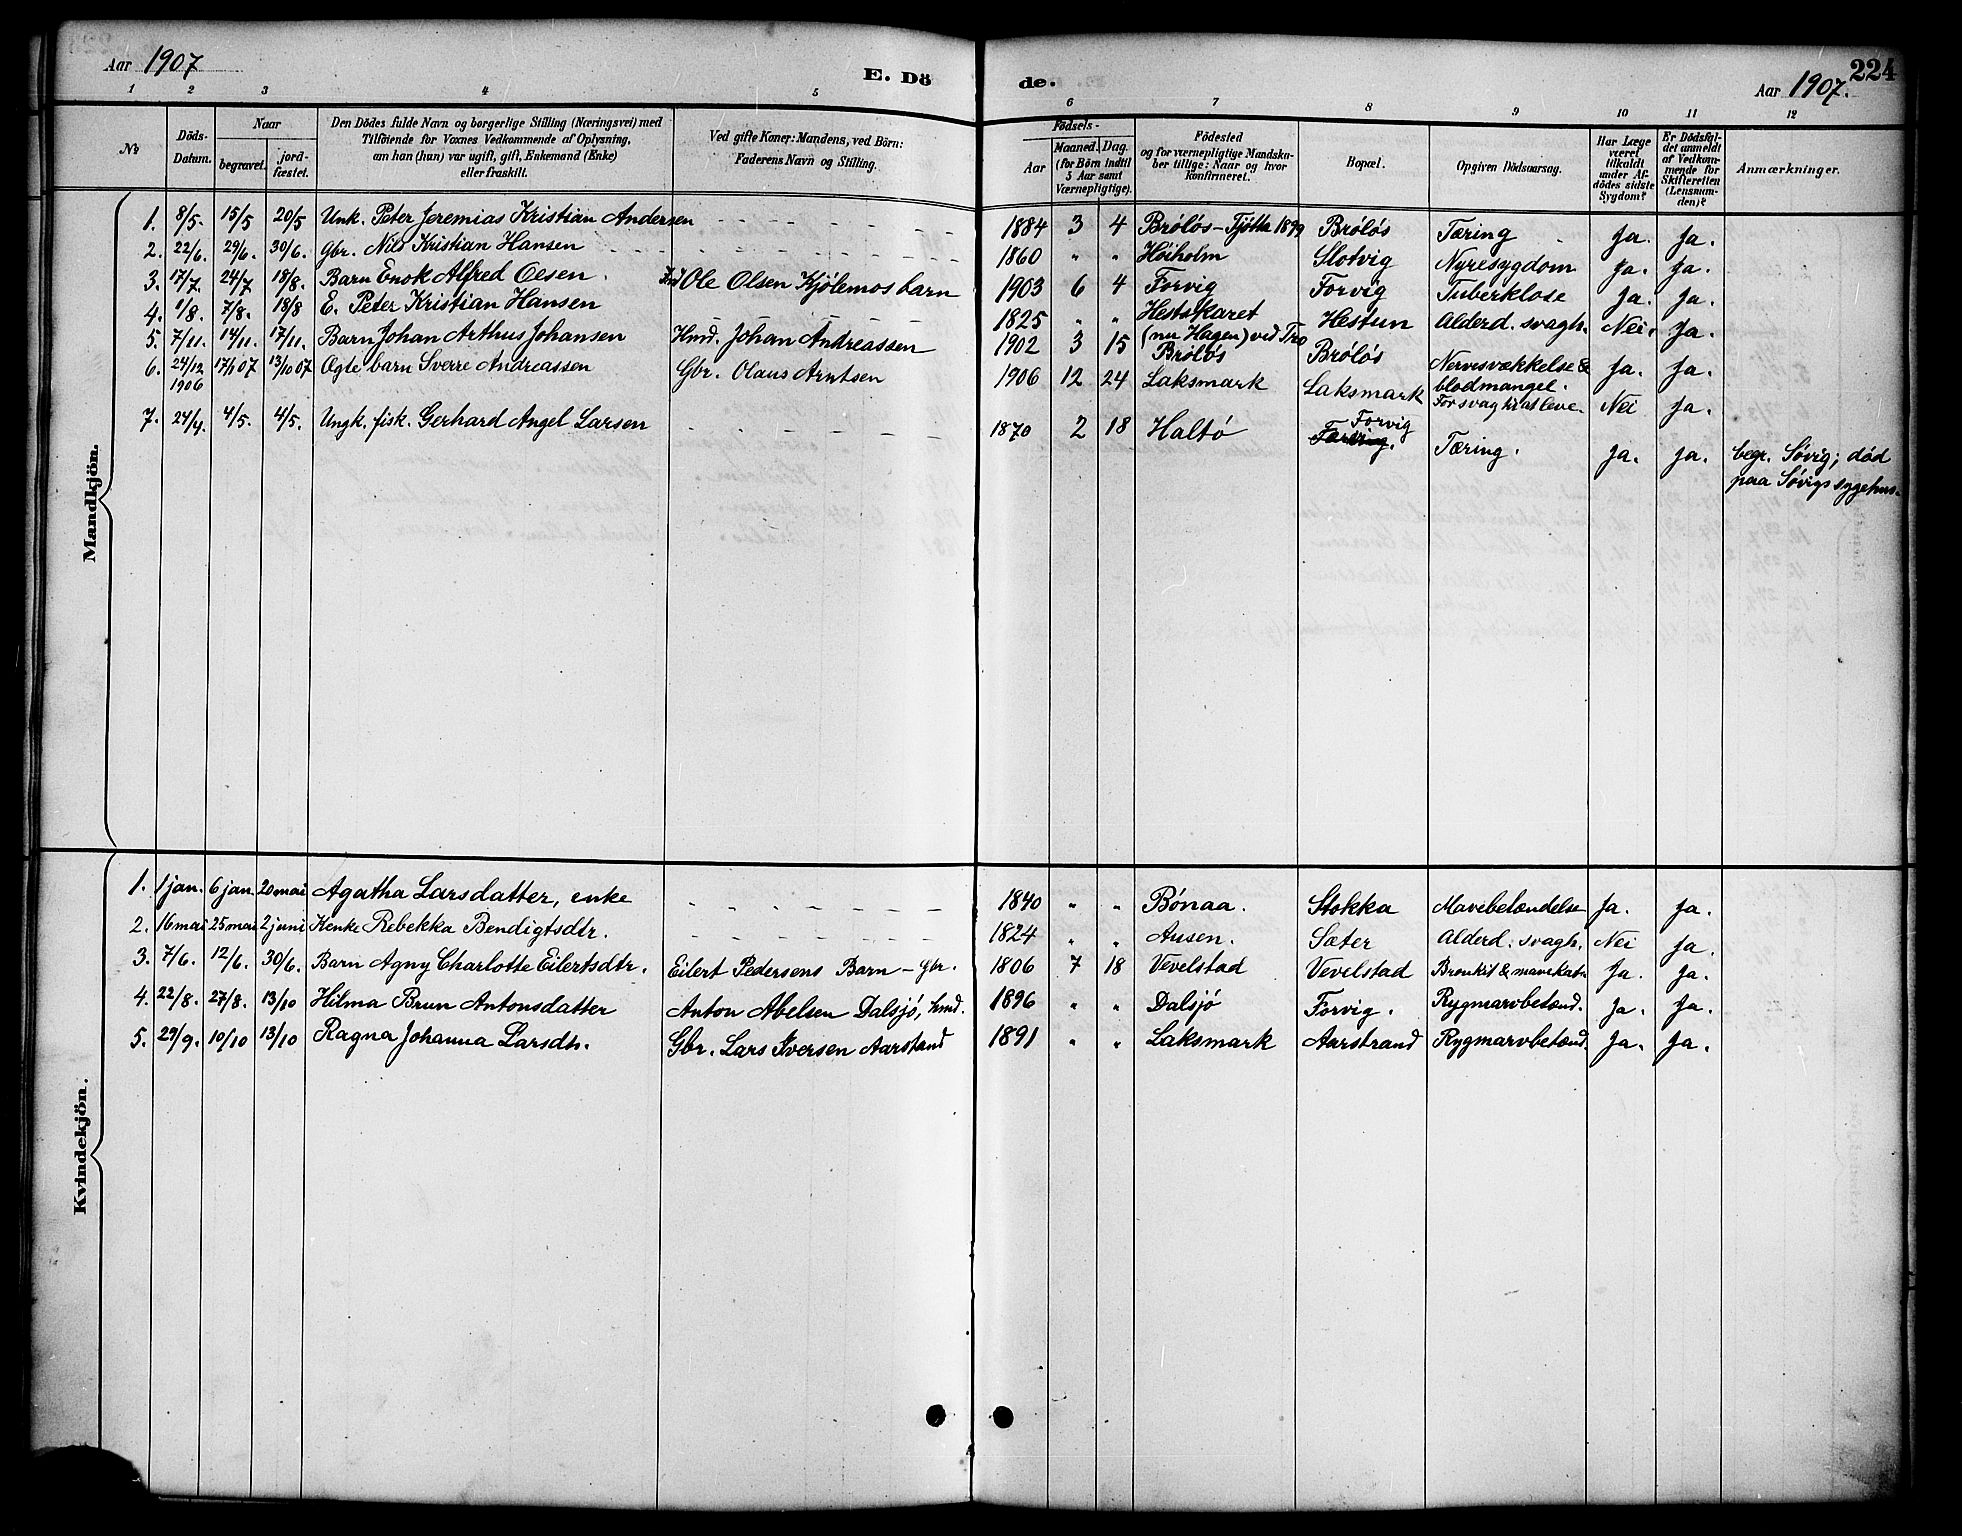 Aar 1907
E. Dö
de.
Aar 1907.
224
1 2 3 4 5 6 7 8 9 10 11 12
No
Döds-Datum.
Naar
begravet.
jord-fæstet.
Den Dödes fulde Navn og borgerlige Stilling (Næringsvei) med
Tilföiende for Voxnes Vedkommende af Oplysning,
om han (hun) var ugift, gift, Enkemand (Enke)
eller fraskilt.
Ved gifte Koner: Mandens, ved Börn:
Faderens Navn og Stilling.
Födsels-
Aar
Maaned. Dag.
(for Börn indtil
5 Aar samt
Værnepligtige).
Födested
og for værnepligtige Mandska-
ber tillige: Naar og hvor
konfirmeret.
Bopæl.
Opgiven Dödsaarsag.
Har Læge
været
tilkaldt
under Af-
dödes sidste
Sygdom?
Er Dödsfal-
det anmeldt
af Vedkom-
mende for
Skifteretten
(Lensman-
den)?
Anmærkninger.
Mandkjön.
1. 8/5. 15/5 20/5 Unk. Peter Jeremias Kristian Andersen 1884 3 4 Bróløs - Tjøtta 1899 Bróløs Tæring Ja. Ja.
2. 22/6. 29/6. 30/6. Gbr. Nils Kristian Hansen 1860 " " Høiholm Slotvig Nyresygdom Ja. Ja.
3. 17/7. 24/7 18/8. Barn Enok Alfred Olsen. Ind Ole Olsen Kjølemos barn 1903 6 4 Forvig Forvig Tuberklose Ja. Ja.
4. 1/8. 7/8. 18/8 E. Peter Kristian Hansen 1825 " " Hestskaret (nu Hagen) ved Tro Hestun Alderd. svagh. Nei. Ja.
5. 7/11. 14/11. 17/11. Barn Johan Arthus Johansen Hmd. Johan Andreassen 1902 3 15 Bróløs Bróløs Nervesvækkelse & blodmangel. Ja. Ja.
6. 24/12 1906 17/1 07 13/10 07 Ægte barn Sverre Andreassen Gbr. Olaus Arntsen 1906 12 24 Laksmark Laksmark For svag til at leve. Nei Ja.
7. 24/4. 4/5. 4/5. Ungk. fisk. Gerhard Angel Larsen 1870 2 18 Haltó Forvig Tæring. Ja. Ja. begr. Søvig; død
paa Søvigs sygehus.
Kvindekjön.
1. 1 jan. 6 jan. 20 mai Agatha Larsdatter, enke 1840 " " Bønaa. Stokka Mavebetændelse Ja. Ja.
2. 16 mai 25 mai 2 juni Kenke Rebekka Bendigtsdtr. 1824 " " Ausen. Sæter Alderd. svagh. Nei Ja.
3. 7/6. 12/6. 30/6. Barn Agny Charlotte Eilertsdtr. Eilert Pedersens Barn - gbr. 1806 7 18 Vevelstad Vevelstad Bronkit & mavekat. Ja. Ja.
4. 22/8. 27/8. 13/10 Hilma Brun Antonsdatter Anton Abelsen Dalsjó, hmd. 1896 " " Dalsjó Forvig. Rygmarvbetænd. Ja. Ja.
5. 29/9. 10/10 13/10 Ragna Johanna Larsdtr. Gbr. Lars Iversen Aarstrand 1891 " " Laksmark Aarstrand Rygmarvbetænd. Ja. Ja.